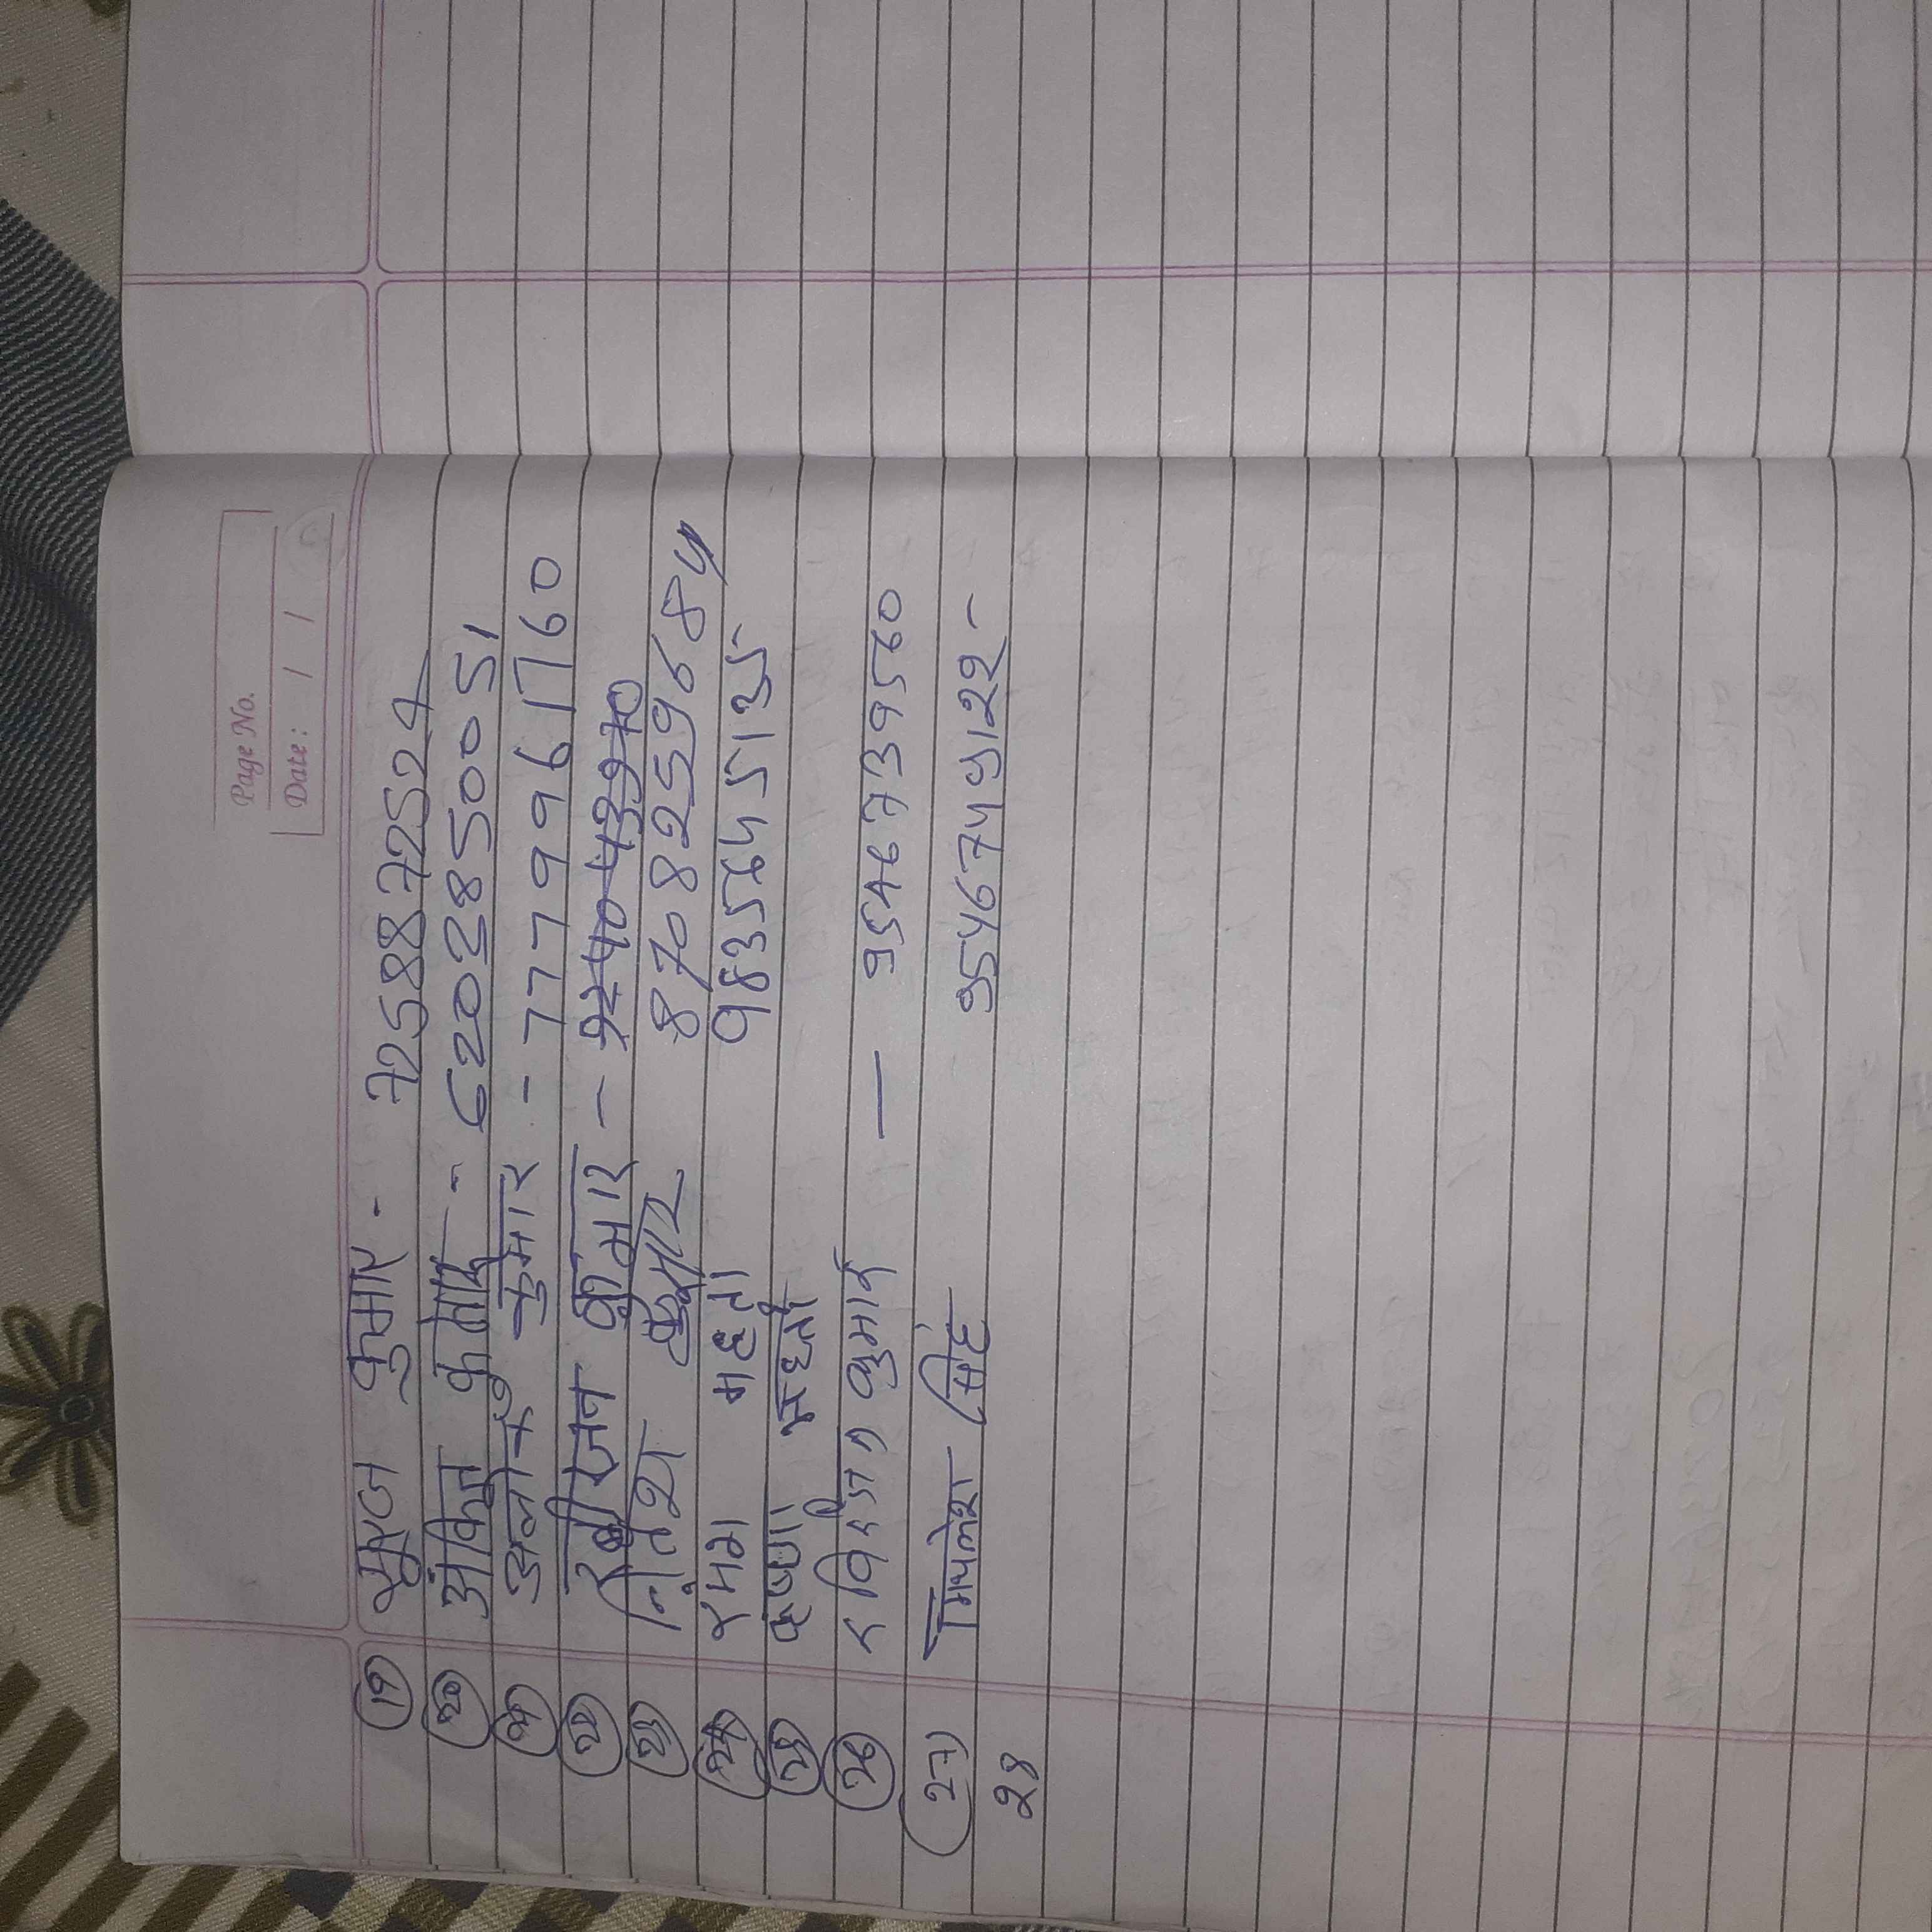 Page No.
Date: / /
19 सूरज कुमार - 7258872524
20 अंकित कुमार - 6203850051
21 कुमार - 7779961760
22 कुमार -
23 नितिश कुमार 8708259684
24 महतो 9835645135
25 कृष्णा महतो
26 रविरंजन कुमार — 9546739560
27) मिथलेश सिंह 9546749122 -
28